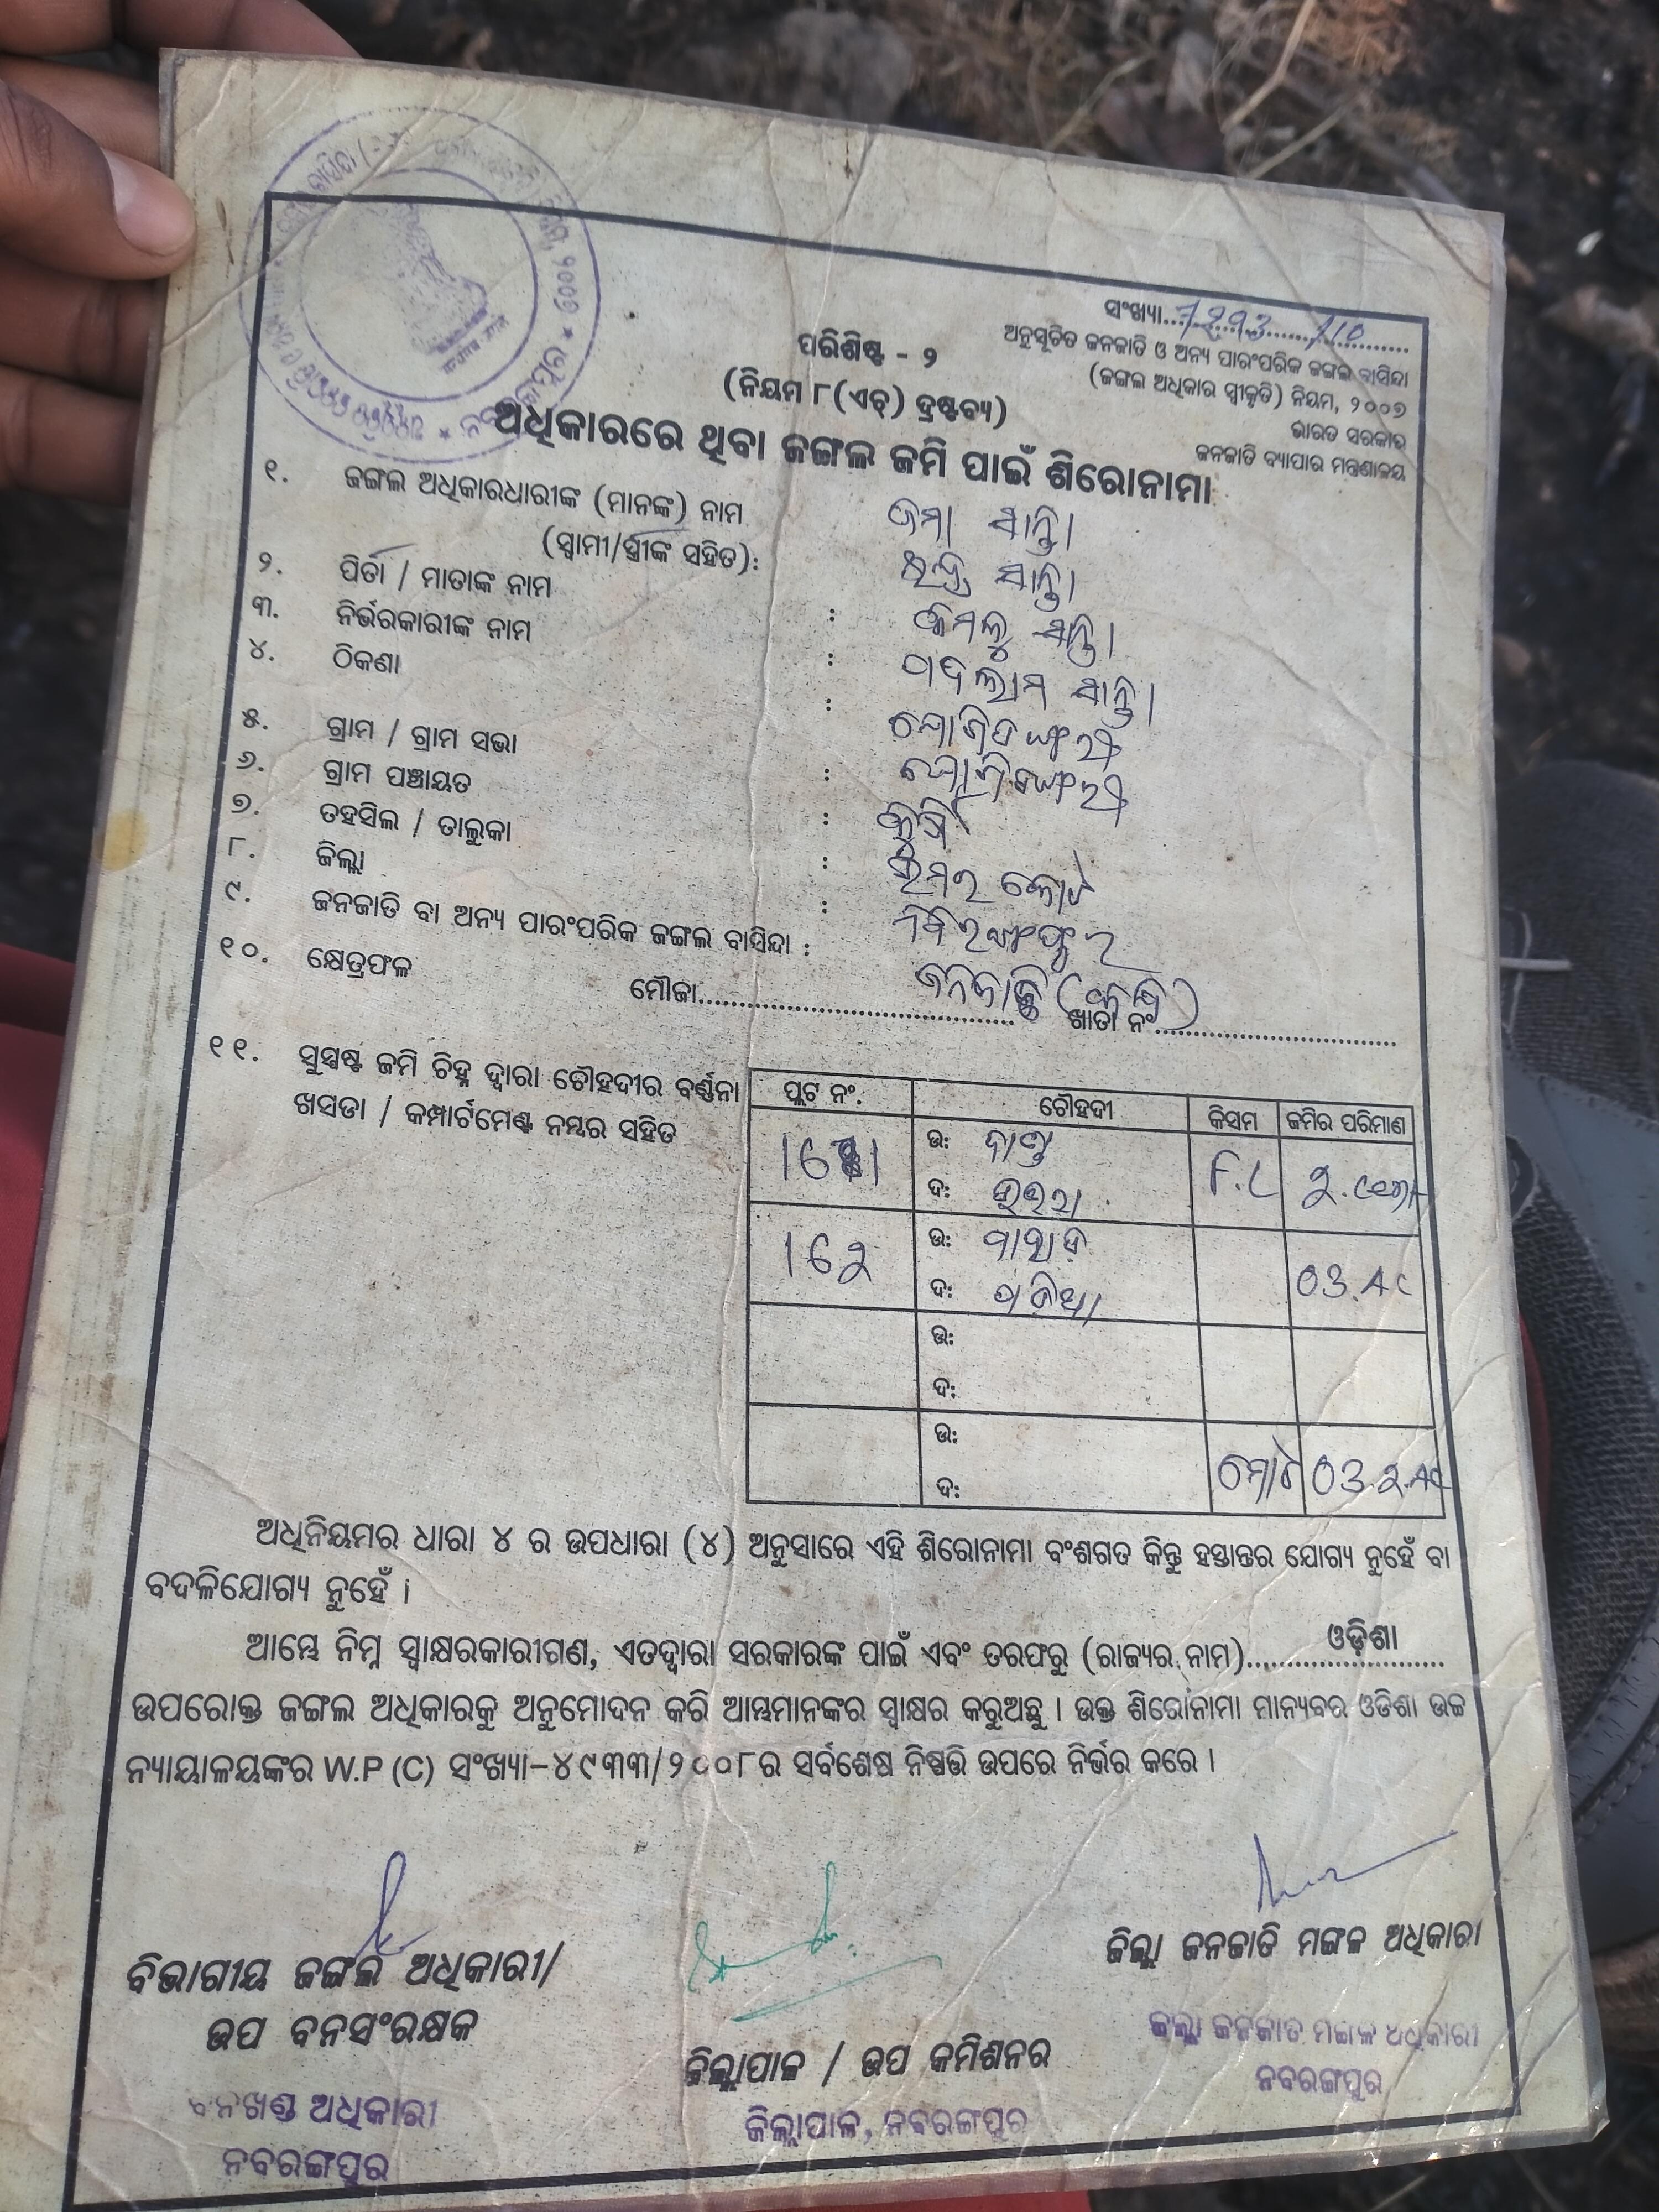 ସଂଖ୍ୟା...7293....../10
ଅନୁସୂଚିତ ଜନଜାତି ଓ ଅନ୍ୟ ପାରଂପରିକ ଜଙ୍ଗଲ ବାସିନ୍ଦା
(ଜଙ୍ଗଲ ଅଧିକାର ସ୍ୱୀକୃତି) ନିୟମ, ୨୦୦୭
ଭାରତ ସରକାର
ଜନଜାତି ବ୍ୟାପାର ମନ୍ତ୍ରଣାଳୟ
ପରିଶିଷ୍ଟ - ୨
(ନିୟମ ୮(ଏଚ୍) ଦ୍ରଷ୍ଟବ୍ୟ)
ଅଧିକାରରେ ଥିବା ଜଙ୍ଗଲ ଜମି ପାଇଁ ଶିରୋନାମା
୧. ଜଙ୍ଗଲ ଅଧିକାରଧାରୀଙ୍କ (ମାନଙ୍କ) ନାମ ସାନ୍ତା
(ସ୍ୱାମୀ/ସ୍ତ୍ରୀଙ୍କ ସହିତ): ସାନ୍ତା
୨. ପିତା / ମାତାଙ୍କ ନାମ : ସାନ୍ତା
୩. ନିର୍ଭରକାରୀଙ୍କ ନାମ : ସାନ୍ତା
୪. ଠିକଣା :
୫. ଗ୍ରାମ / ଗ୍ରାମ ସଭା :
୬. ଗ୍ରାମ ପଞ୍ଚାୟତ :
୭. ତହସିଲ / ତାଲୁକା : ଉମରକୋଟ
୮. ଜିଲ୍ଲା : ନବରଙ୍ଗପୁର
୯. ଜନଜାତି ବା ଅନ୍ୟ ପାରଂପରିକ ଜଙ୍ଗଲ ବାସିନ୍ଦା : ଜନଜାତି
୧୦. କ୍ଷେତ୍ରଫଳ ମୌଜା.............................. ଖାତା ନଂ..............................
୧୧. ସୁସ୍ପଷ୍ଟ ଜମି ଚିହ୍ନ ଦ୍ୱାରା ଚୌହଦୀର ବର୍ଣ୍ଣନା
ଖସଡା / କମ୍ପାର୍ଟମେଣ୍ଟ ନମ୍ବର ସହିତ
ପ୍ଲଟ ନଂ. ଚୌହଦୀ କିସମ ଜମିର ପରିମାଣ
ଉ: ଦାଣ୍ଡ
ଦ:
ଉ: ପାହାଡ 03.AC
ଦ:
ଉ:
ଦ:
ଉ:
ଦ: ମୋଟ
ଅଧିନିୟମର ଧାରା ୪ ର ଉପଧାରା (୪) ଅନୁସାରେ ଏହି ଶିରୋନାମା ବଂଶଗତ କିନ୍ତୁ ହସ୍ତାନ୍ତର ଯୋଗ୍ୟ ନୁହେଁ ବା
ବଦଳିଯୋଗ୍ୟ ନୁହେଁ ।
ଆମ୍ଭେ ନିମ୍ନ ସ୍ୱାକ୍ଷରକାରୀଗଣ, ଏତଦ୍ୱାରା ସରକାରଙ୍କ ପାଇଁ ଏବଂ ତରଫରୁ (ରାଜ୍ୟର ନାମ)....ଓଡ଼ିଶା....
ଉପରୋକ୍ତ ଜଙ୍ଗଲ ଅଧିକାରକୁ ଅନୁମୋଦନ କରି ଆମ୍ଭମାନଙ୍କର ସ୍ୱାକ୍ଷର କରୁଅଛୁ । ଉକ୍ତ ଶିରୋନାମା ମାନ୍ୟବର ଓଡିଶା ଉଚ୍ଚ
ନ୍ୟାୟାଳୟଙ୍କର W.P (C) ସଂଖ୍ୟା-୪୯୩୩/୨୦୦୮ର ସର୍ବଶେଷ ନିଷ୍ପତ୍ତି ଉପରେ ନିର୍ଭର କରେ ।
ବିଭାଗୀୟ ଜଙ୍ଗଲ ଅଧିକାରୀ/
ଉପ ବନସଂରକ୍ଷକ
ବନଖଣ୍ଡ ଅଧିକାରୀ
ନବରଙ୍ଗପୁର
ଜିଲ୍ଲାପାଳ / ଉପ କମିଶନର
ଜିଲ୍ଲାପାଳ, ନବରଙ୍ଗପୁର
ଜିଲ୍ଲା ଜନଜାତି ମଙ୍ଗଳ ଅଧିକାରୀ
ଜିଲ୍ଲା ଜନଜାତି ମଙ୍ଗଳ ଅଧିକାରୀ
ନବରଙ୍ଗପୁର